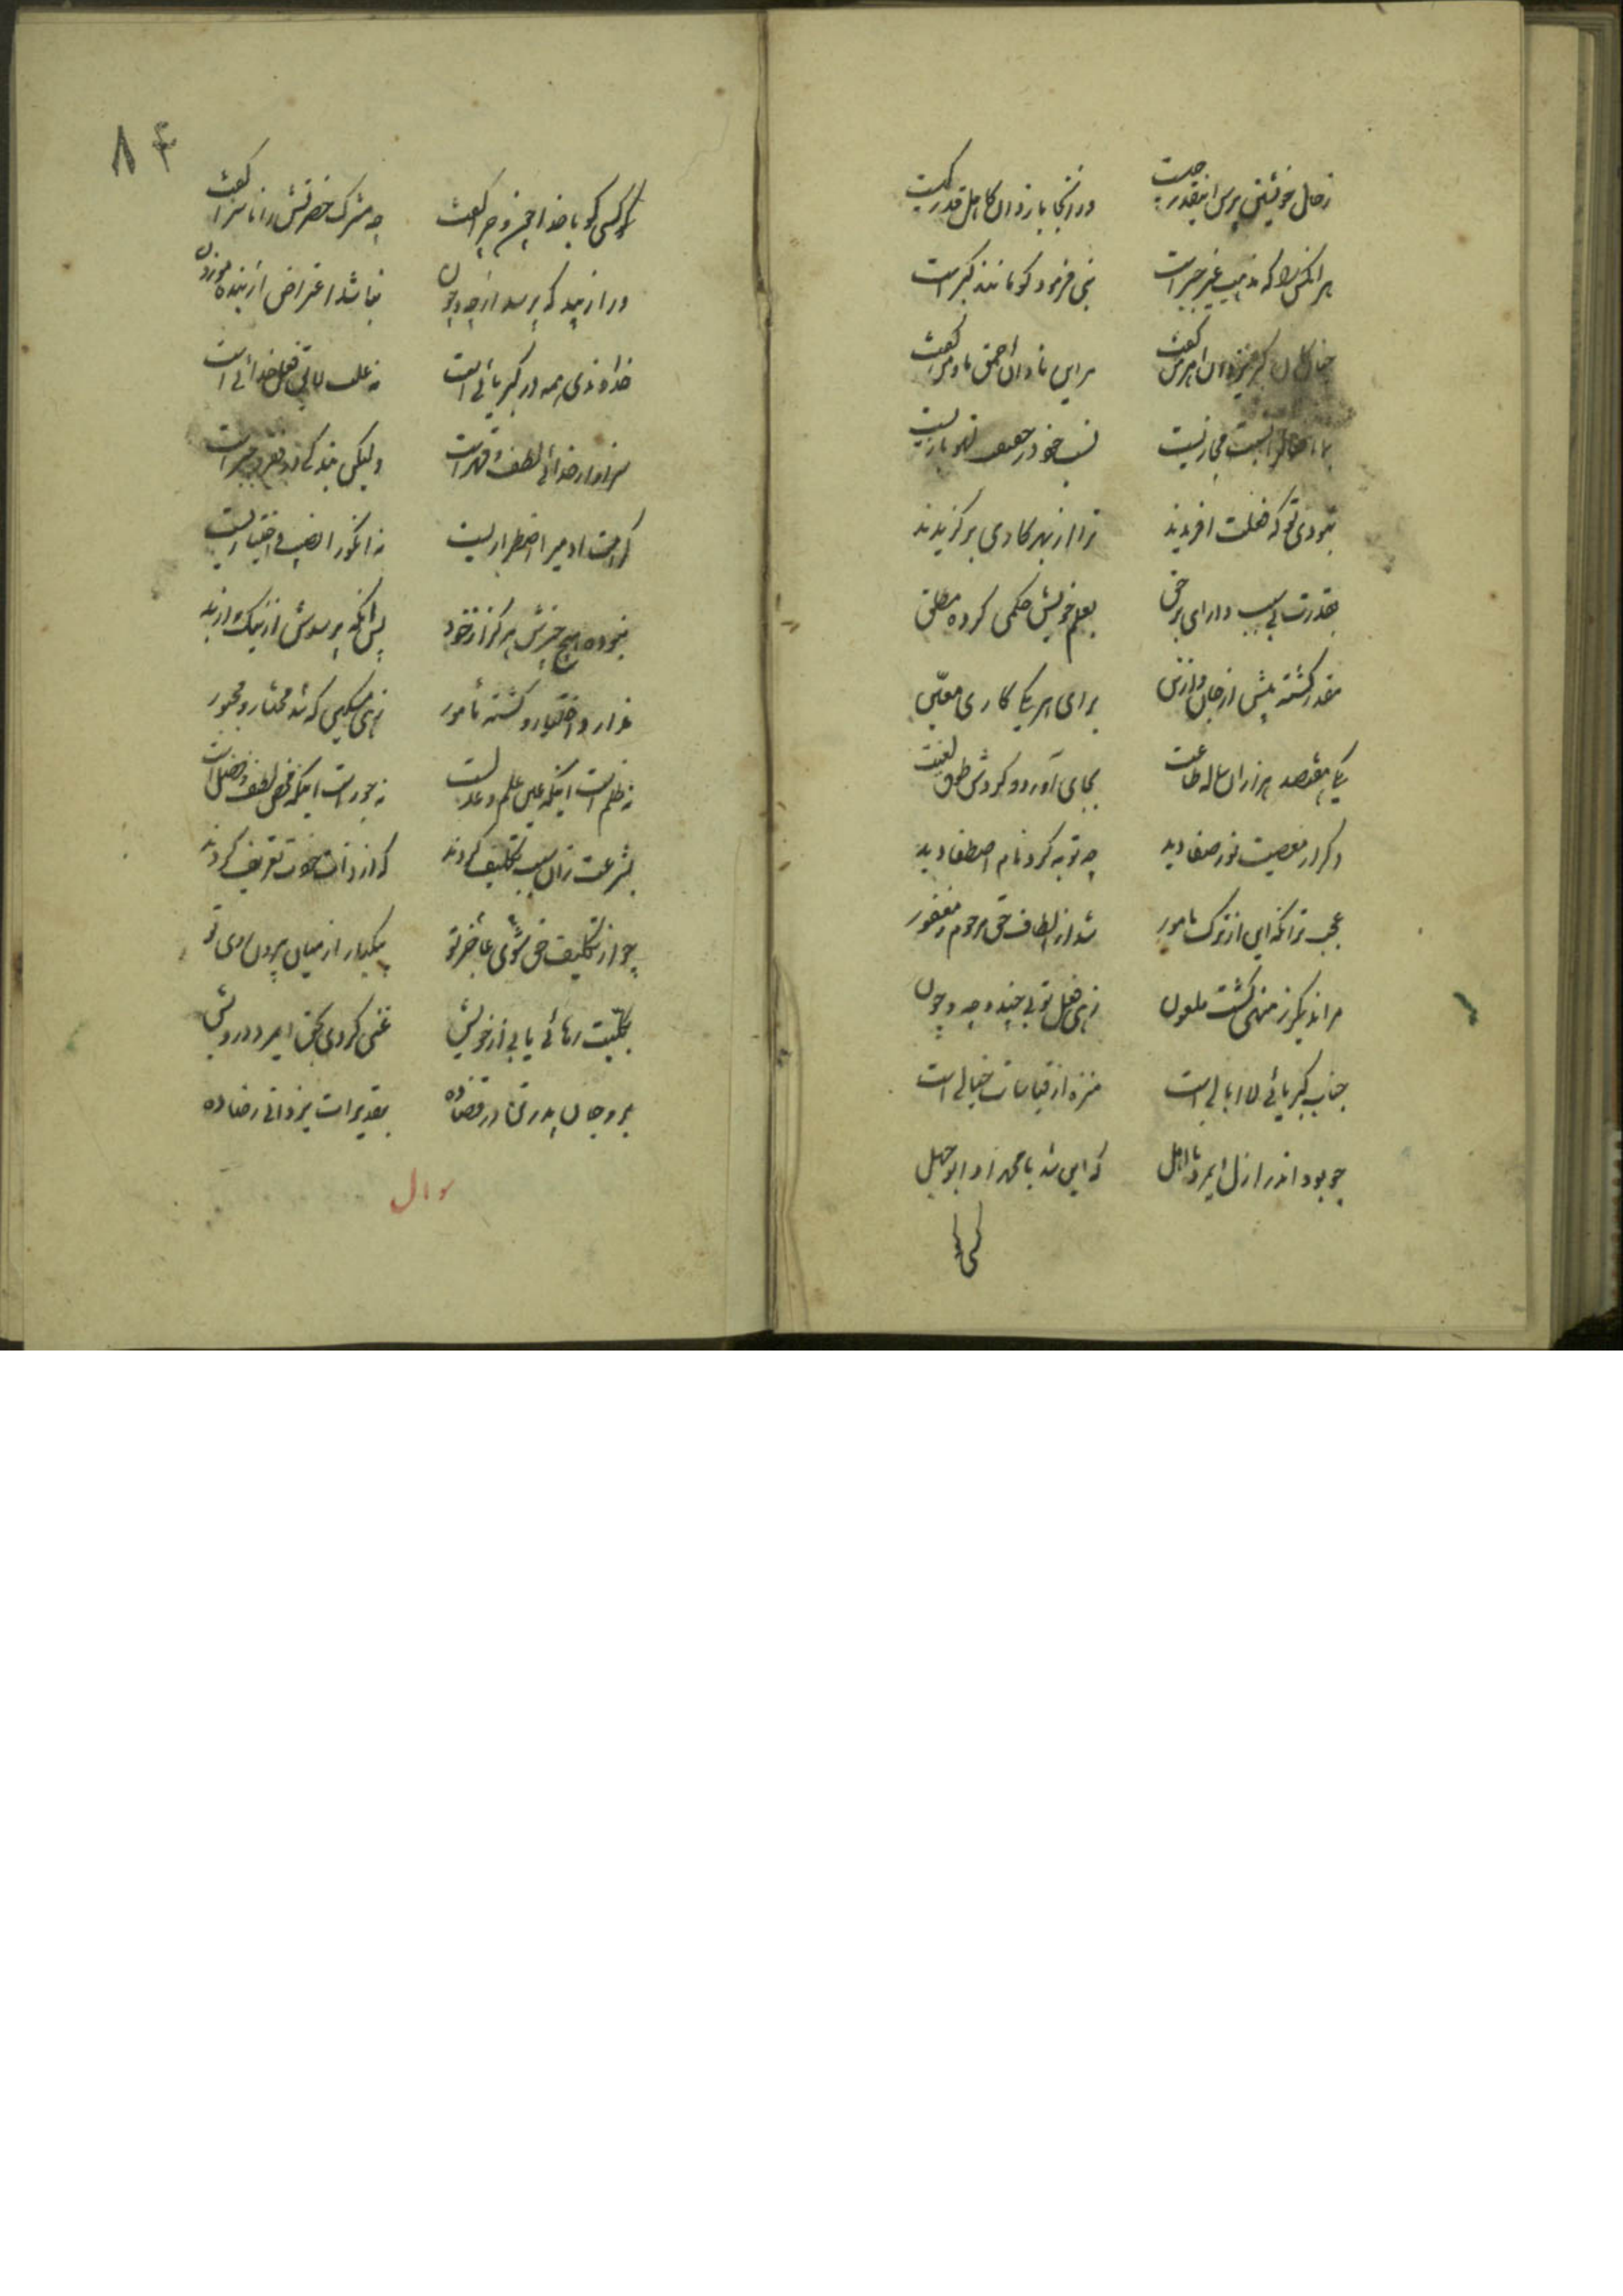 زحال خویشتن پرس اینقدر چیست
وز آنجا باز دان کاهل قدر کیست
هر آنکس را که مذهب غیر جبر است
نبی فرمود کو مانند گبر است
چنان کان گبر یزدان اهرمن گفت
مر این نادان احمق ما و من گفت
بما افعال را نسبت مجازیست
نسب خود در حقیقت لهو بازیست
نبودی تو که فعلت افریدند
ترا از بهر کاری برگزیدند
بقدرت بی سبب دارای بر حق
بعلم خویش حکمی کرده مطلق
مقدر گشته پیش از جان و از تن
برای هر یکی کاری معین
یکی هفتصد هزاران ساله طاعت
بجای آورد و کردش طوق لعنت
دگر از معصیت نور صفا دید
چو توبه کرد نام اصطفا دید
عجب تر آنکه این از ترک مامور
شد از الطاف حق مرحوم و مغفور
مر اندیگر ز منهی گشت ملعون
زهی فعل تو بی چند و چه و چون
جناب کبریائی لاابالی است
منزه از قیاسات خیالی است
چه بود اندر ازل ایمرد نااهل
که این شد با محمد او ابوجهل
کسی
۸۴
کسی کو با خدا چون و چرا گفت
چو مشرک حضرتش را ناسزا گفت
ورا زیبد که پرسد از چه و چون
نباشد اعتراض از بنده موزون
خداوندی همه در کبریائی است
نه علت لایق فعل خدائی است
سزاوار خدائی لطف و قهر است
ولیکن بندگی در فقر و جبر است
کرامت ادمی را اضطراریست
نه انکورا نصیب و اختیاریست
نبوده هیچ چیزش هرگز از خود
پس آنگه پرسدش از نیک و از بد
ندارد اختیار و گشته مأمور
زهی مسکین که شد مختار و مجبور
نه ظلم است اینکه عین علم و عدلست
نه جور است اینکه محض لطف و فضل است
بشرعت زان سبب تکلیف کردند
که از ذات خودت تعریف کردند
چو از تکلیف حق شوی عاجز تو
بیکبار از میان بیرون روی تو
بکلیت رهائی یابی از خویش
غنی گردی بحق ایمرد درویش
برو جان پدر تن در قضا ده
بتقدیرات یزدانی رضا ده
سوال